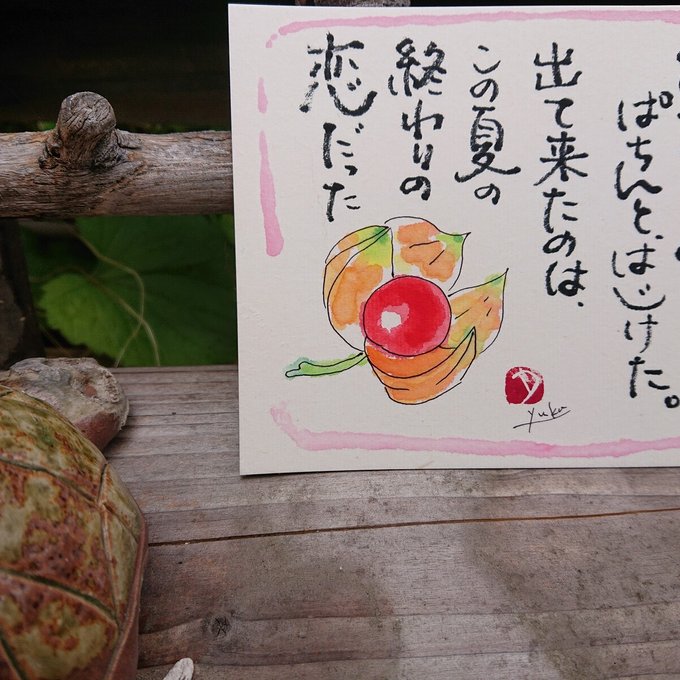 ぱちんと、はじけた。
出て来たのは、
この夏の
終わりの
恋だった
yuka